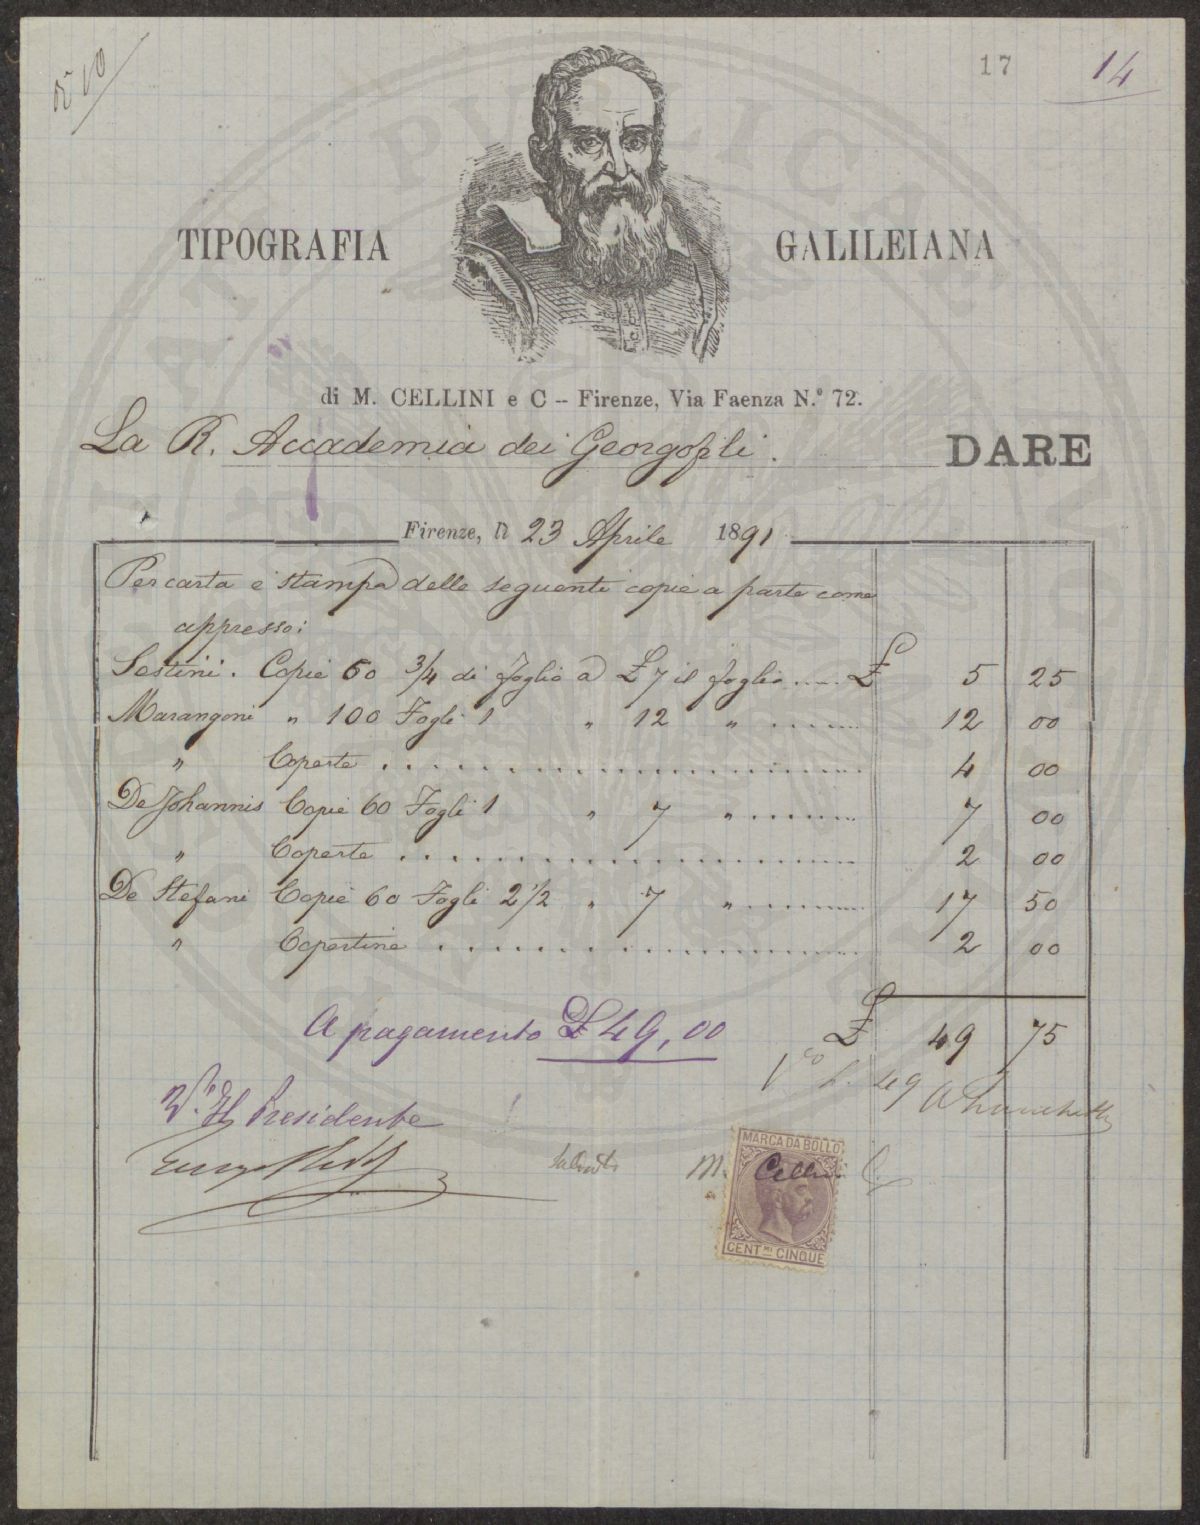 17 14
TIPOGRAFIA GALILEIANA
di M. CELLINI e C – Firenze, Via Faenza N.° 72.
La R. Accademia dei Georgofili. DARE
Firenze, lì 23 Aprile 1891
Per carta e stampa delle seguenti copie a parte come
appresso:
Sestini. Copie 60 3/4 di foglio a £ 7 il foglio ..... £ 5 25
Marangoni " 100 Fogli 1 " 12 " ....... 12 00
" Coperte ........................ 4 00
De Johannis Copie 60 Fogli 1 " 7 " ....... 7 00
" Coperte ........................ 2 00
De Stefani Copie 60 Fogli 2 1/2 " 7 " ....... 17 50
" Copertine ........................ 2 00
£ 49 75
A pagamento £ 49,00
V° Il Presidente
Saldato M. Cellini C.
MARCA DA BOLLO
CENT.MI CINQUE